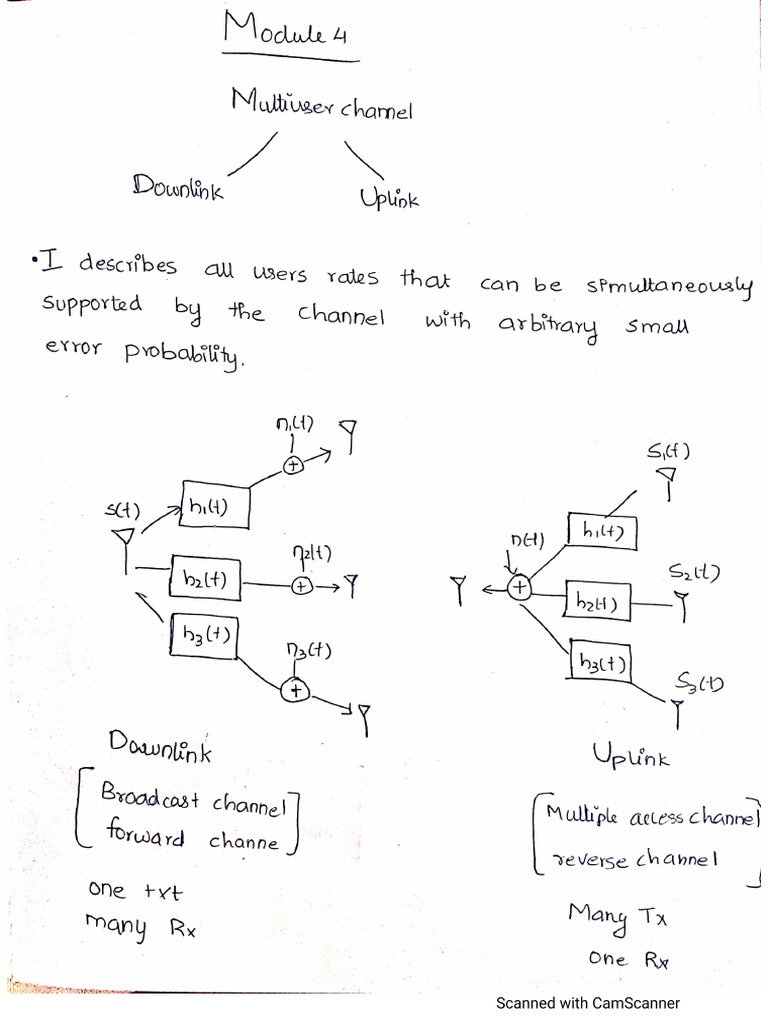 Module 4
Multiuser channel
Downlink
Uplink
• I describes all users rates that can be simultaneously
supported by the channel with arbitrary small
error probability.
n1(t)
+
s(t)
h1(t)
n2(t)
h2(t)
+
h3(t)
n3(t)
+
Downlink
[Broadcast channel
forward channe]
one txt
many Rx
S1(t)
n(t)
h1(t)
S2(t)
+
h2(t)
h3(t)
S3(t)
Uplink
[Multiple access channel
reverse channel]
Many Tx
one Rx
Scanned with CamScanner